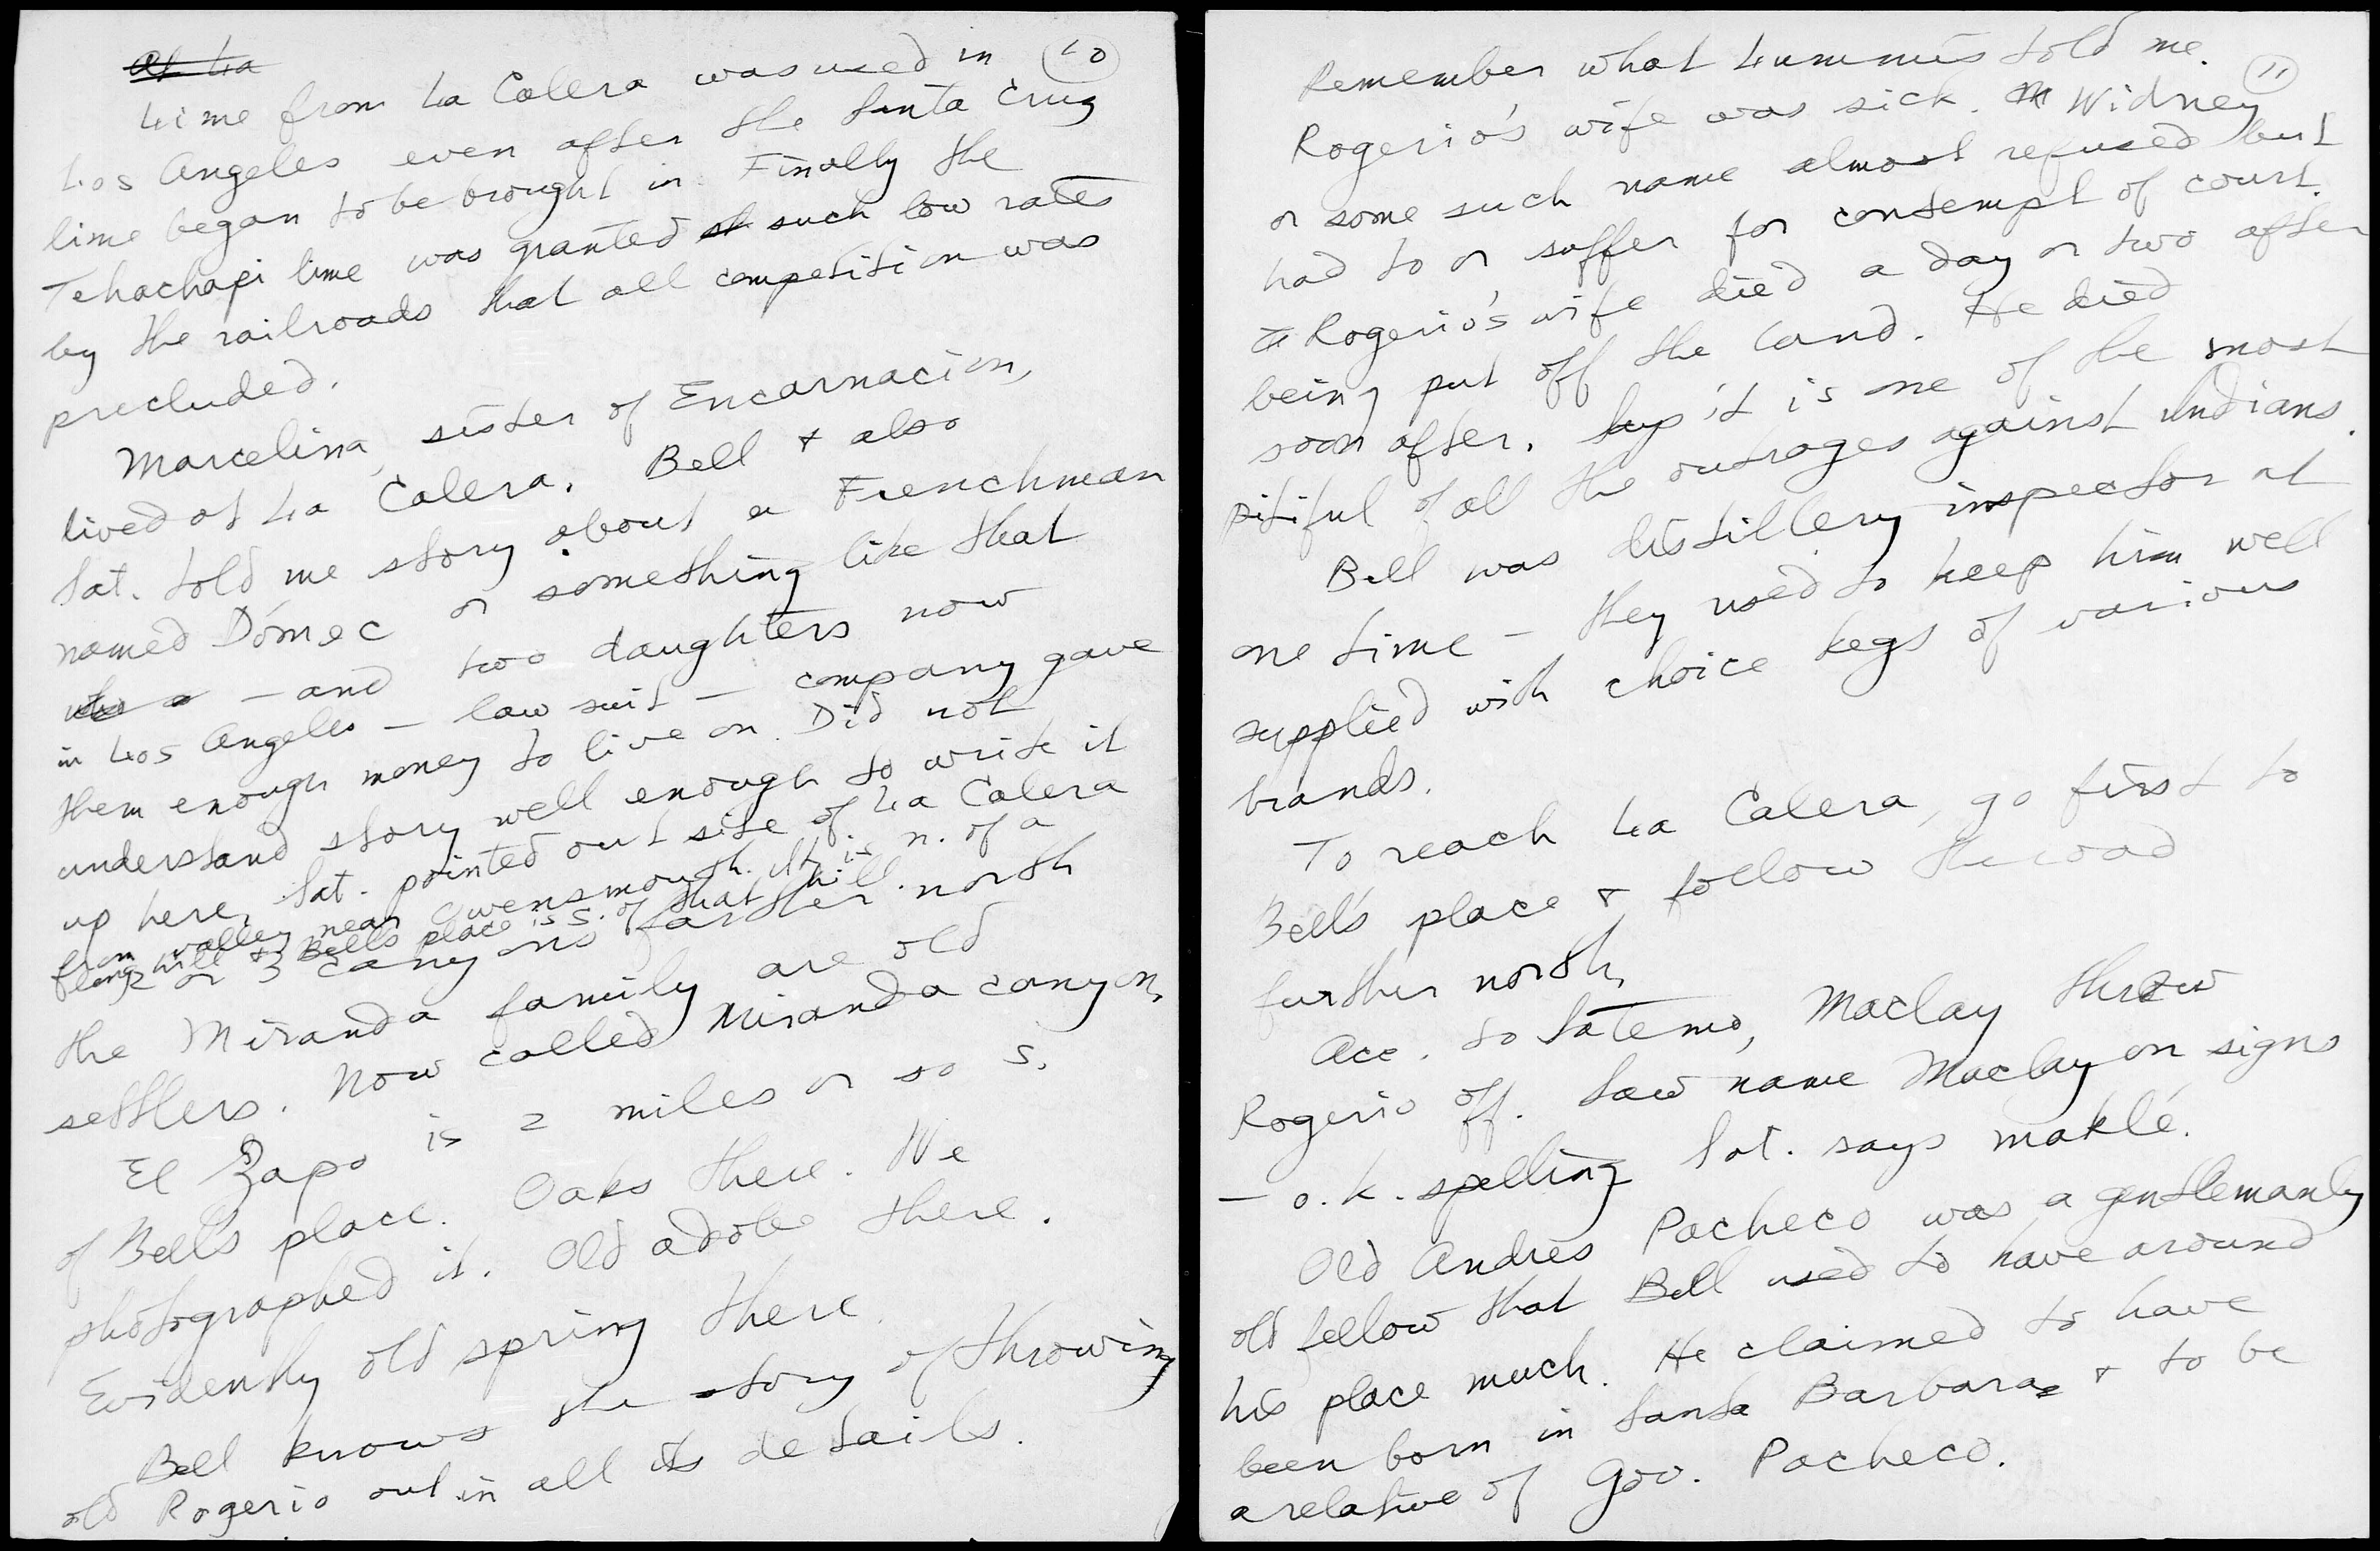 At La
10
Lime from La Calera was used in
Los Angeles even after the Santa Cruz
lime began to be brought in. Finally the
Tehachapi lime was granted such low rates
by the railroads that all competition was
precluded.
Marcelina, sister of Encarnacion,
lived at La Calera. Bell & also
Sat. told me story about a Frenchman
named Dómec or something like that
— and two daughters now
in Los Angeles — law suit — company gave
them enough money to live on. Did not
understand story well enough to write it
up here. Sat. pointed out site of La Calera
from valley near Owensmouth. It is n. of a
long hill & Bell's place is s. of that hill.
2 or 3 canyons farther north
the Miranda family are old
settlers. Now called Miranda canyon.
El Zapo is 2 miles or so s.
of Bell's place. Oaks there. We
photographed it. Old adobe there.
Evidently old spring there.
Bell knows the story of throwing
old Rogerio out in all its details.
11
Remember what Lummis told me.
Rogerio's wife was sick. Widney
or some such name almost refused but
had to or suffer for contempt of court.
Rogerio's wife died a day or two after
being put off the land. He died
soon after. Says it is one of the most
pitiful of all the outrages against Indians.
Bell was distillery inspector at
one time — they used to keep him well
supplied with choice kegs of various
brands.
To reach La Calera, go first to
Bell's place & follow the road
further north.
Acc. to Saterno, Maclay threw
Rogerio off. Saw name Maclay on signs
— o.k. spelling Sat. says maklé.
Old Andrés Pacheco was a gentlemanly
old fellow that Bell used to have around
his place much. He claimed to have
been born in Santa Barbara & to be
a relative of Gov. Pacheco.